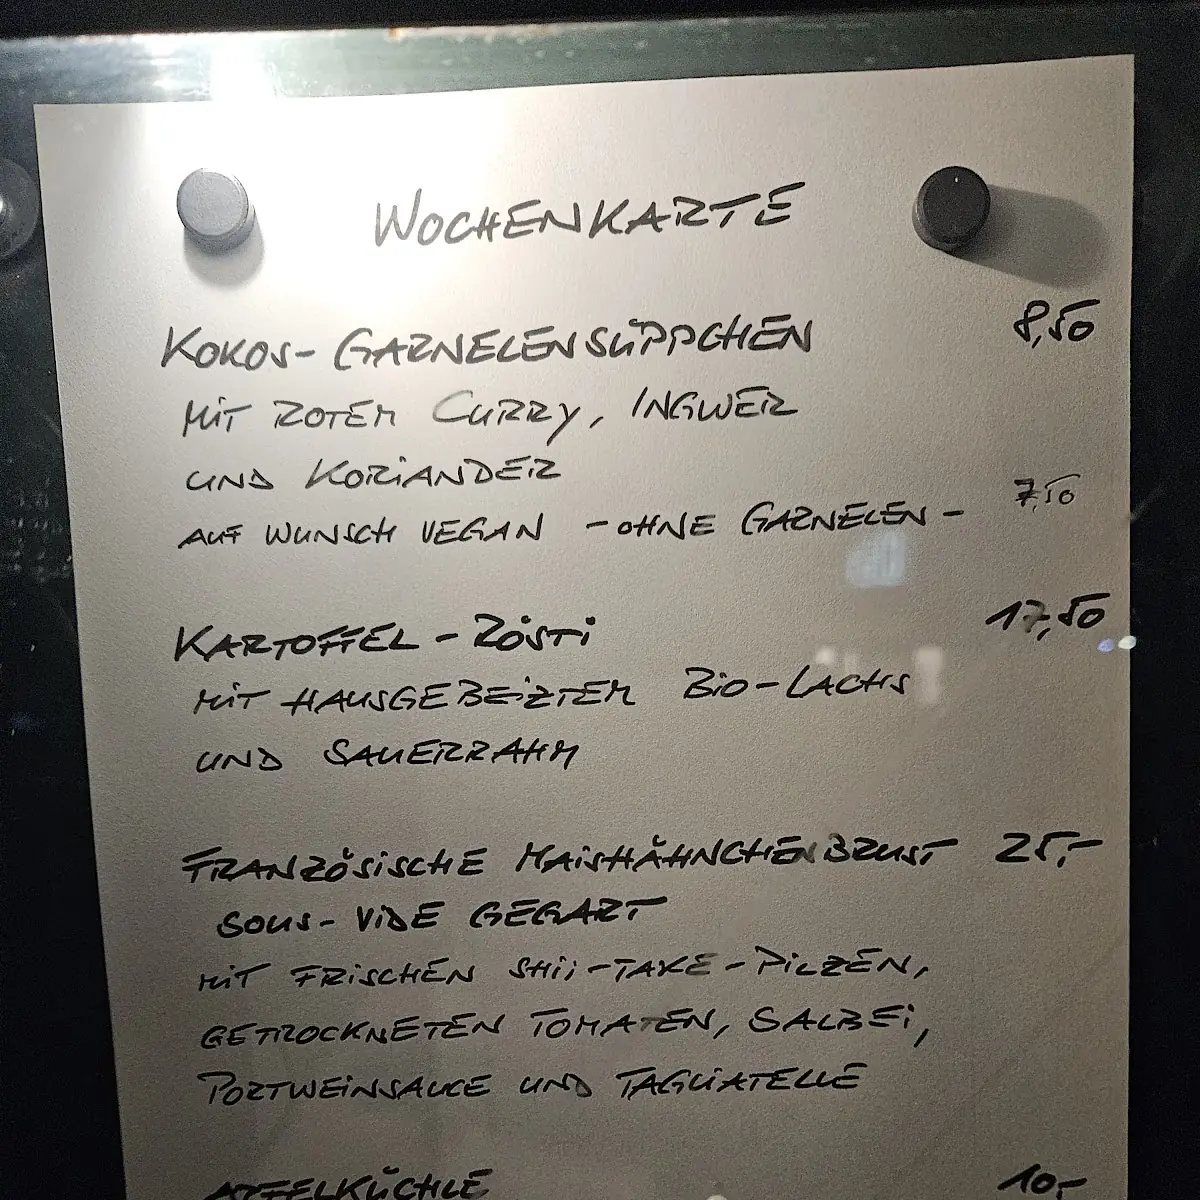 WOCHENKARTE
KOKOS-GARNELENSÜPPCHEN 8,50
MIT ROTEM CURRY, INGWER
UND KORIANDER
AUF WUNSCH VEGAN -OHNE GARNELEN- 7,50
KARTOFFEL-RÖSTI 17,50
MIT HAUSGEBEIZTEM BIO-LACHS
UND SAUERRAHM
FRANZÖSISCHE MAISHÄHNCHENBRUST 25,-
SOUS-VIDE GEGART
MIT FRISCHEN SHII-TAKE-PILZEN,
GETROCKNETEN TOMATEN, SALBEI,
PORTWEINSAUCE UND TAGLIATELLE
APFELKÜCHLE 10,-